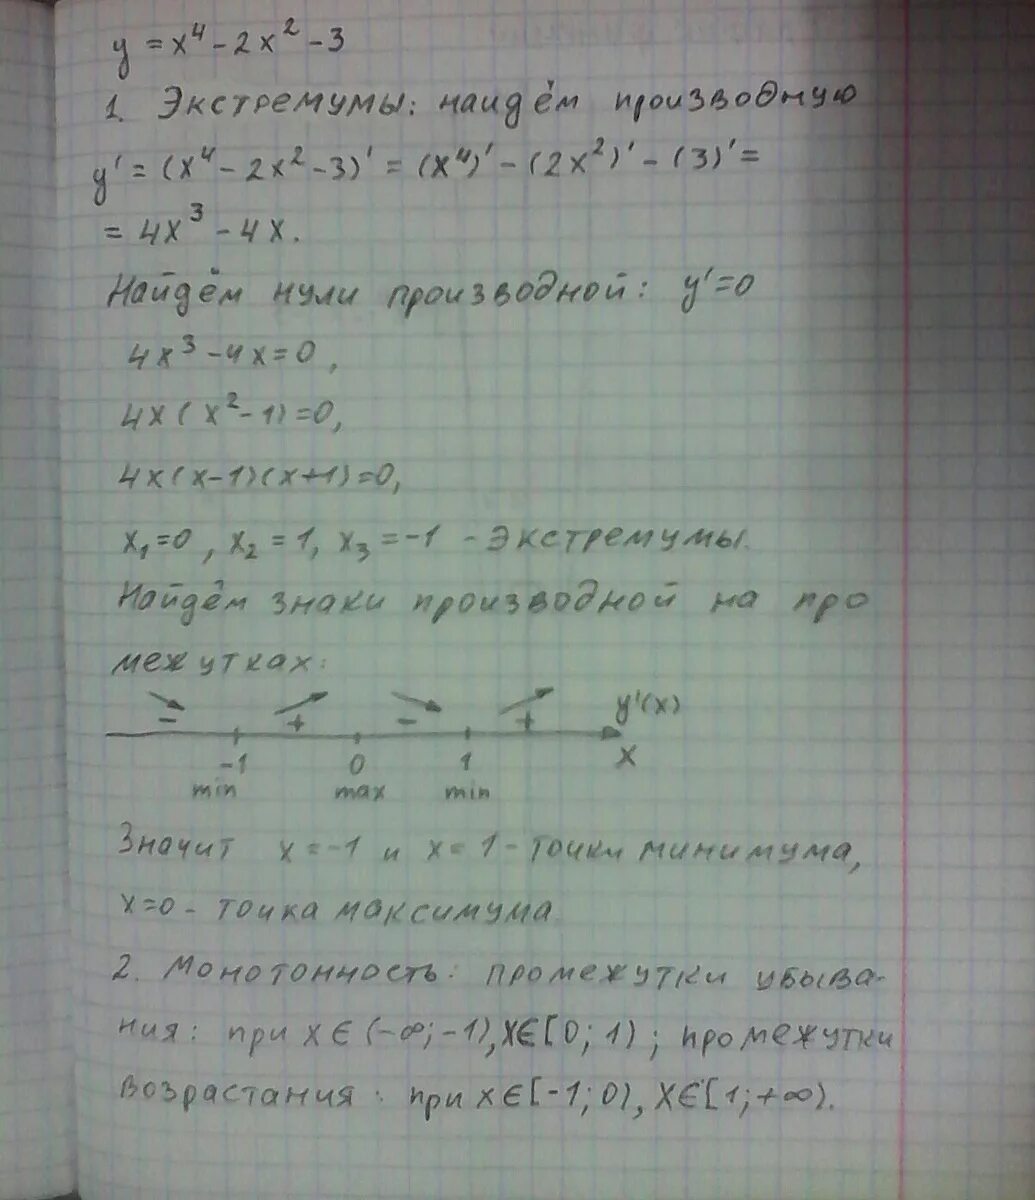 y = x⁴ - 2x² - 3
1. Экстремумы: найдём производную
y' = (x⁴ - 2x² - 3)' = (x⁴)' - (2x²)' - (3)' =
= 4x³ - 4x.
Найдём нули производной: y'=0
4x³ - 4x = 0,
4x(x² - 1) = 0,
4x(x-1)(x+1)=0,
x₁=0, x₂ = 1, x₃ = -1 - экстремумы.
Найдём знаки производной на про
межутках:
- + - + y'(x)
-1 0 1 x
min max min
Значит x = -1 и x = 1 - точки минимума,
x=0 - точка максимума.
2. Монотонность: промежутки убыва-
ния: при x∈(-∞; -1), x∈[0; 1); промежутки
возрастания: при x∈[-1; 0), x∈[1; +∞).